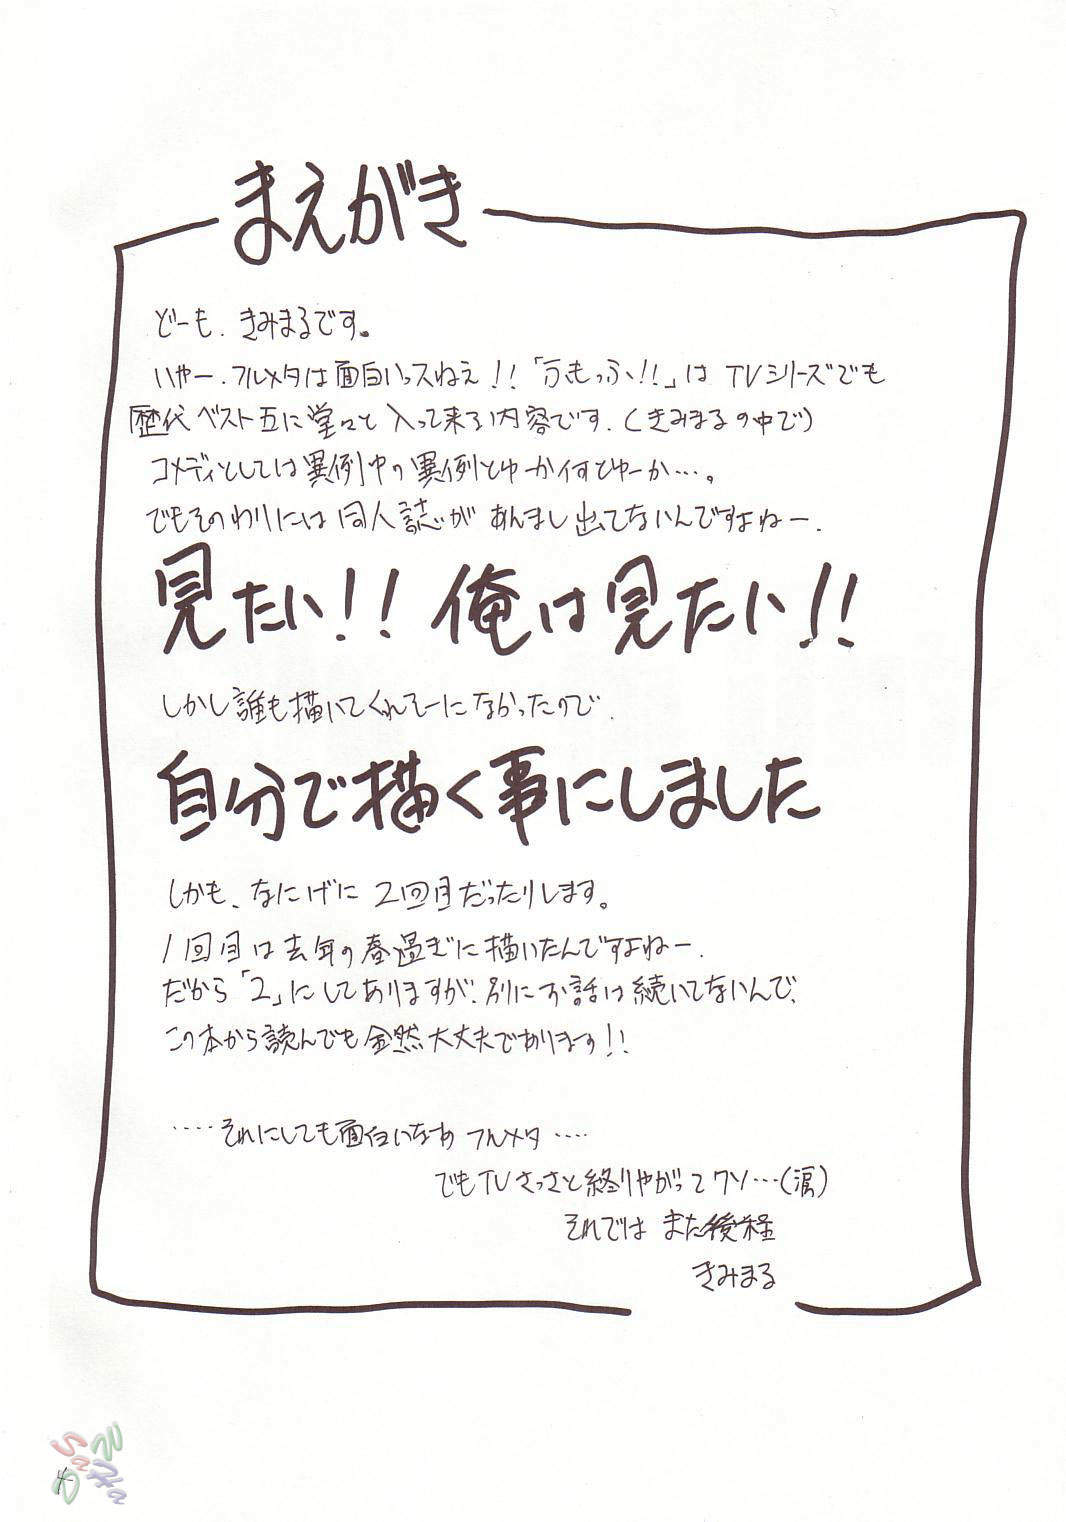 まえがき
どーも、きみまるです。
いやー、フルメタは面白いっスねえ!!「ふもっふ!!」は TVシリーズでも
歴代ベスト五に堂々と入って来る内容です、(きみまるの中で)
コメディとしては異例中の異例とゆーか何とゆーか…。
でもそのわりには同人誌があんまし出てないんですよねー、
見たい!!俺は見たい!!
しかし誰も描いてくれそーになかったので、
自分で描く事にしました
しかも、なにげに2回目だったりします。
1回目は去年の春過ぎに描いたんですよねー、
だから「2」にしてありますが、別にお話は続いてないんで、
この本から読んでも全然大丈夫であります!!
‥‥それにしても面白いなあ フルメタ‥‥
でもTVさっさと終りやがってクソ…(涙)
それでは また後程
きみまる
4